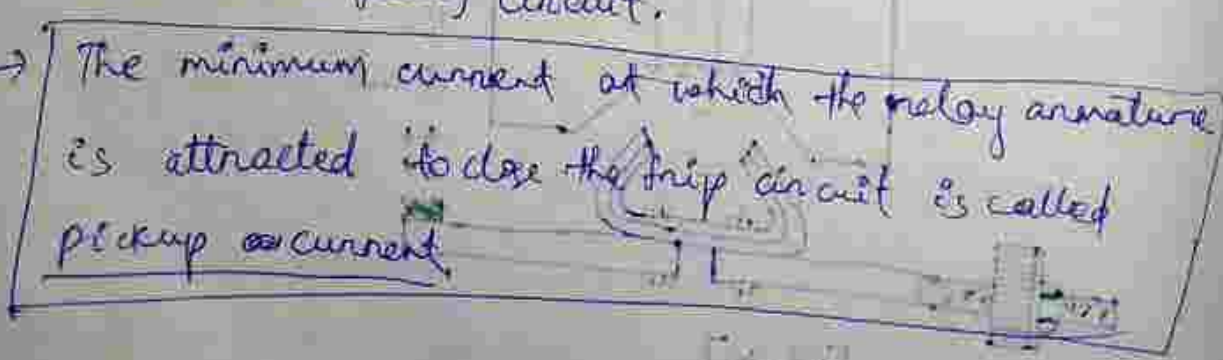 circuit.
→ The minimum current at which the relay armature
is attracted to close the trip circuit is called
pickup current